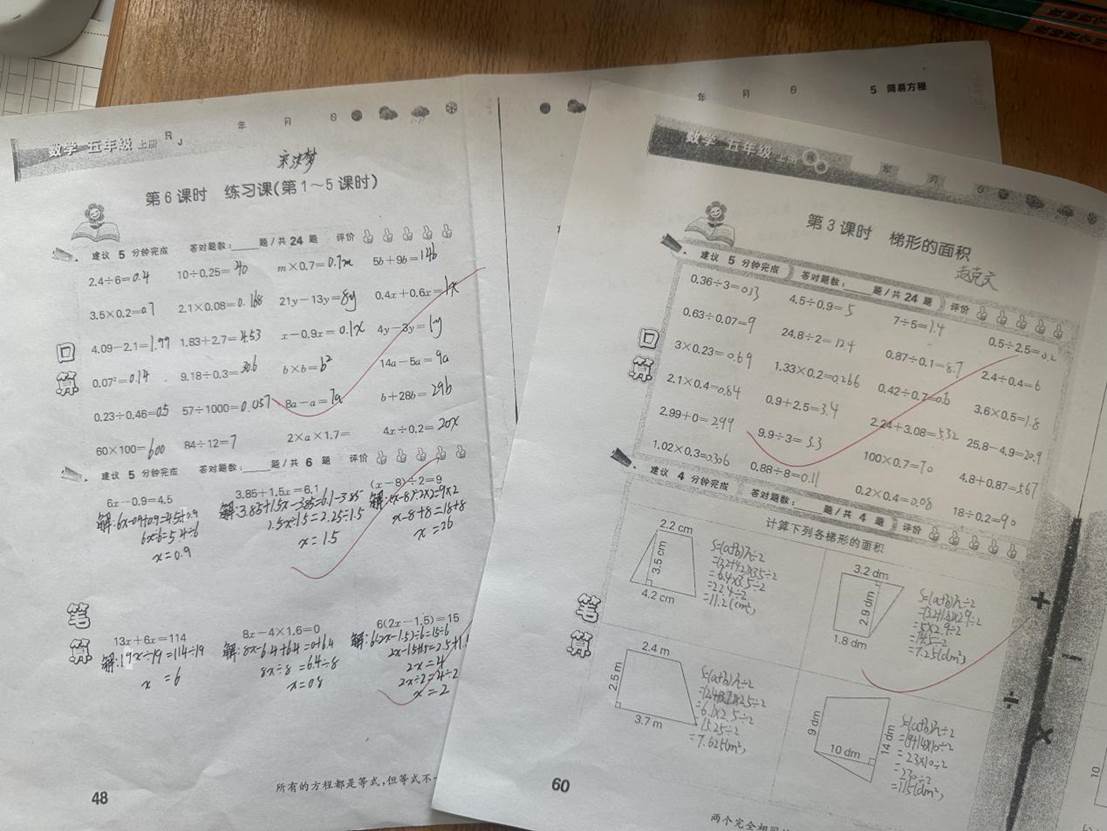 数学 五年级 上册 R J
年 月 日
第 6 课时 练习课(第 1～5 课时)
建议 5 分钟完成 答对题数:____题/共 24 题 评价
2.4÷6=0.4 10÷0.25=40 m×0.7=0.7m 5b+9b=14b
3.5×0.2=0.7 2.1×0.08=0.168 21y-13y=8y 0.4x+0.6x=1x
4.09-2.1=1.99 1.83+2.7=4.53 x-0.9x=0.1x 4y-3y=1y
口算
0.07²=0.14 9.18÷0.3=30.6 b×b=b² 14a-5a=9a
0.23÷0.46=0.5 57÷1000=0.057 8a-a=7a b+28b=29b
60×100=600 84÷12=7 2×a×1.7= 4x÷0.2=20x
建议 5 分钟完成 答对题数:____题/共 6 题 评价
6x-0.9=4.5 3.85+1.5x=6.1 (x-8)÷2=9
解:6x-0.9+0.9=4.5+0.9 解:3.85+1.5x-3.85=6.1-3.85 解:(x-8)÷2×2=9×2
6x÷6=5.4÷6 1.5x÷1.5=2.25÷1.5 x-8+8=18+8
x=0.9 x=1.5 x=26
笔算
13x+6x=114 8x-4×1.6=0 6(2x-1.5)=15
解:19x÷19=114÷19 解:8x-6.4+6.4=0+6.4 解:6(2x-1.5)÷6=15÷6
x=6 8x÷8=6.4÷8
x=0.8 2x=4
2x÷2=4÷2
x=2
所有的方程都是等式,但等式不
48
年 月 日 5 简易方程
数学 五年级 上册
年 月 日
第 3 课时 梯形的面积
建议 5 分钟完成 答对题数:____题/共 24 题 评价
0.36÷3=0.13 4.5÷0.9=5 7÷5=1.4 0.5÷2.5=0.2
0.63÷0.07=9 24.8÷2=12.4 0.87÷0.1=8.7 2.4÷0.4=6
口算
3×0.23=0.69 1.33×0.2=0.266 0.42÷0.7=0.6 3.6×0.5=1.8
2.1×0.4=0.84 0.9+2.5=3.4 2.24+3.08=5.32 25.8-4.9=20.9
2.99+0=2.99 9.9÷3=3.3 100×0.7=70 4.8+0.87=5.67
1.02×0.3=0.306 0.88÷8=0.11 0.2×0.4=0.08 18÷0.2=90
建议 4 分钟完成 答对题数:____题/共 4 题 评价
计算下列各梯形的面积
笔算
2.2 cm
3.5 cm
4.2 cm
S=(a+b)h÷2
=6.4×3.5÷2
=22.4÷2
=11.2(cm²)
3.2 dm
2.9 dm
1.8 dm
S=(a+b)h÷2
=(3.2+1.8)×2.9÷2
=5×2.9÷2
=14.5÷2
=7.25(dm²)
2.4 m
2.5 m
3.7 m
S=(a+b)h÷2
=(2.4+3.7)×2.5÷2
=6.1×2.5÷2
=15.25÷2
=7.625(m²)
9 dm
10 dm
14 dm
S=(a+b)h÷2
=(9+14)×10÷2
=23×10÷2
=230÷2
=115(dm²)
+
-
÷
×
60
10